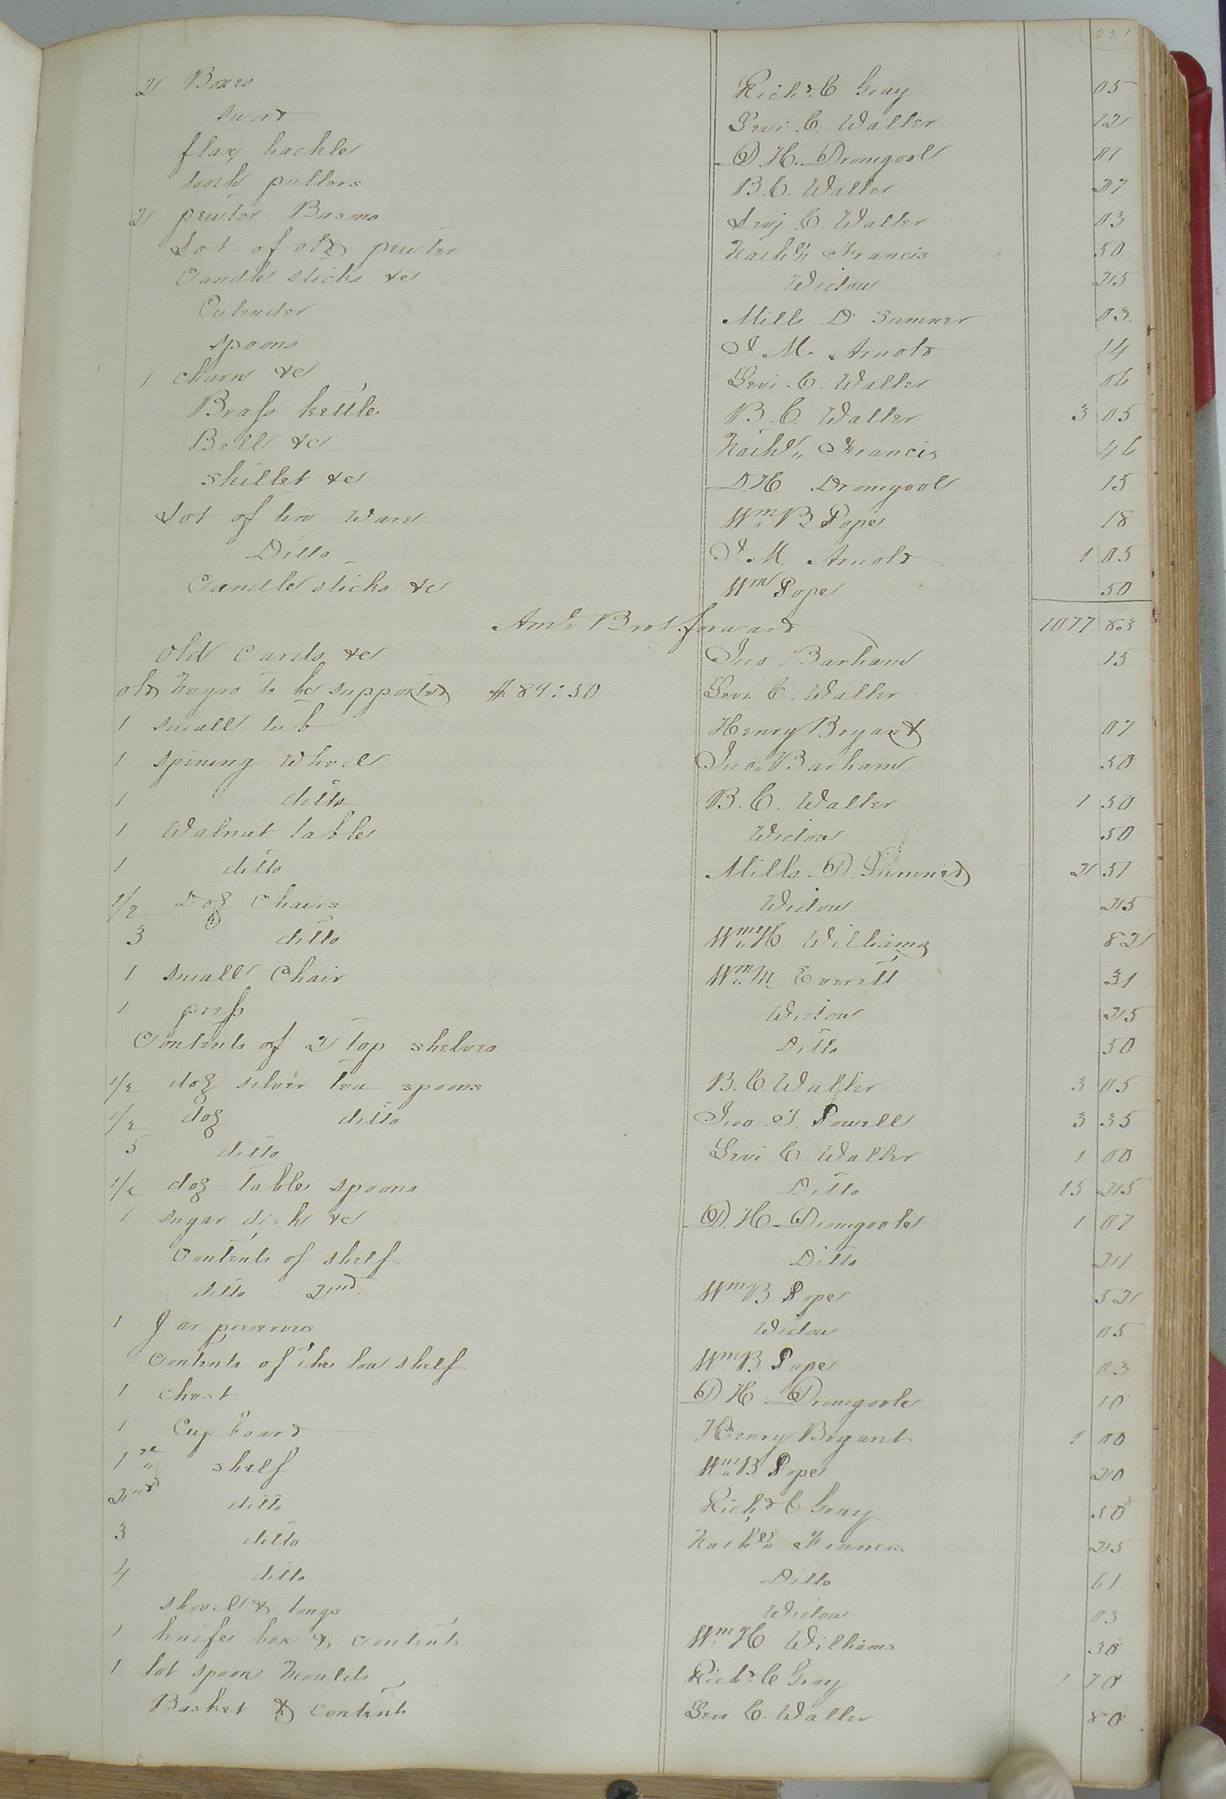 221
2 Boxes Richd. C Gray 05
sword Levi. C. Waller 12
flax hackle D. H. Dromgool 01
tooth pullers B. C. Waller 27
2 pewter Basons Levi C. Waller 03
Lot of old pewter Nathl. Francis 50
Candle sticks &c Widow 25
Culender Mills D Sumner 03
spoons J M. Arnold 14
1 churn &c Levi. C. Waller 06
Brass kettle B. C. Waller 3 05
Bell &c Nathl. Francis 46
skillet &c D. H Dromgool 15
Lot of tin Ware Wm B Pope 18
Ditto J. M Arnold 1 05
Candle sticks &c Wm Pope 50
Amt. Brot. forward 1077 83
old cards &c Jno Barham 15
old Negro to be supported $84:50 Levi C. Waller
1 small tub Henry Bryant 07
1 spining wheel Jno. Barham 50
1 ditto B. C. Waller 1 50
1 Walnut table Widow 50
1 ditto Mills. D. Sumner 2 51
1/2 Doz Chairs Widow 25
3 ditto Wm H Williams 82
1 small Chair Wm M Everitt 31
1 press Widow 25
Contents of 2 top shelves Ditto 50
1/2 doz silver tea spoons B. C. Waller 3 05
1/2 doz ditto Jno. T. Powell 3 35
5 ditto Levi C. Waller 1 00
1/2 doz table spoons Ditto 15 25
1 sugar dish &c D. H. Dromgoole 1 07
Contents of shelf Ditto 21
ditto 2nd Wm B Pope 52
1 Jar preserves Widow 05
Contents of the low shelf Wm B Pope 03
1 chest D H. Dromgoole 10
1 Cup board Henry Bryant 1 00
1 shelf Wm B Pope 20
2nd ditto Richd C Gray 50
3 ditto Nathl. Francis 25
4 ditto Ditto 61
shovel & tongs Widow 03
1 knife box & contents Wm H Williams 30
1 lot spoon moulds Richd. C Gray 1 70
Basket & contents Levi C. Waller 80